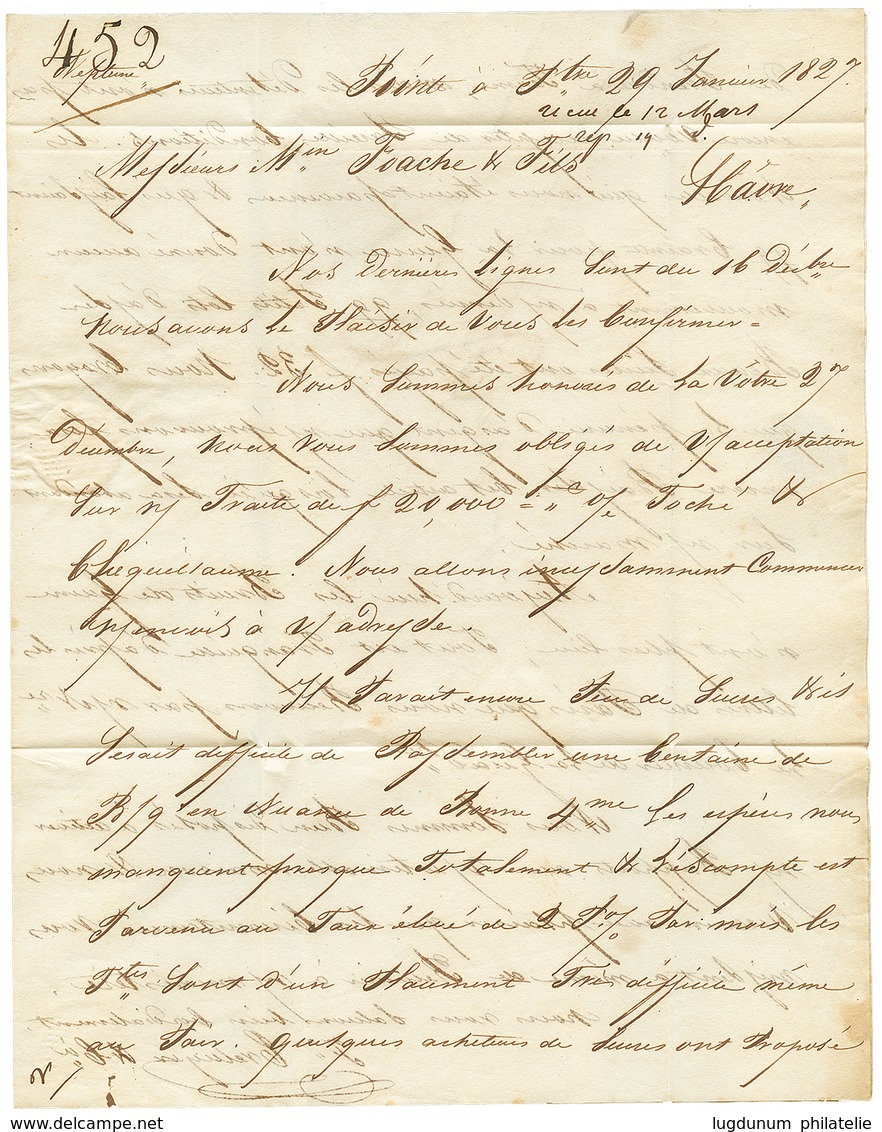 452
Neptune
Pointe à Ptre 29 Janvier 1827.
recue le 12 Mars
rep. 14 d.
Messieurs Min Foache & Fils
Hâvre
Nos dernières lignes sont du 16 Décbre
nous avons le Plaisir de Vous les Confirmer =
Nous Sommes honorés de la Vôtre 27
Décembre, nous Vous Sommes obligés de V/ acceptation
Sur n/ Traite de f 20,000 = " o/ Toché &
Cheguillaume. Nous allons incessamment Commencer
n/ envois à V/ adresse.
Il Parait encore Peu de Sucres & il
Serait difficile de Rassembler une Centaine de
B/q en Nuance de Bonne 4me les espèces nous
manquent presque Totalement & L'éscompte est
Parvenu au Taux élevé de 2 P% Par mois les
Ttes Sont d'un Placement Très difficile même
au Pair. Quelques acheteurs de Sucres ont Proposé
www.delcampe.net
lugdunum philatelie